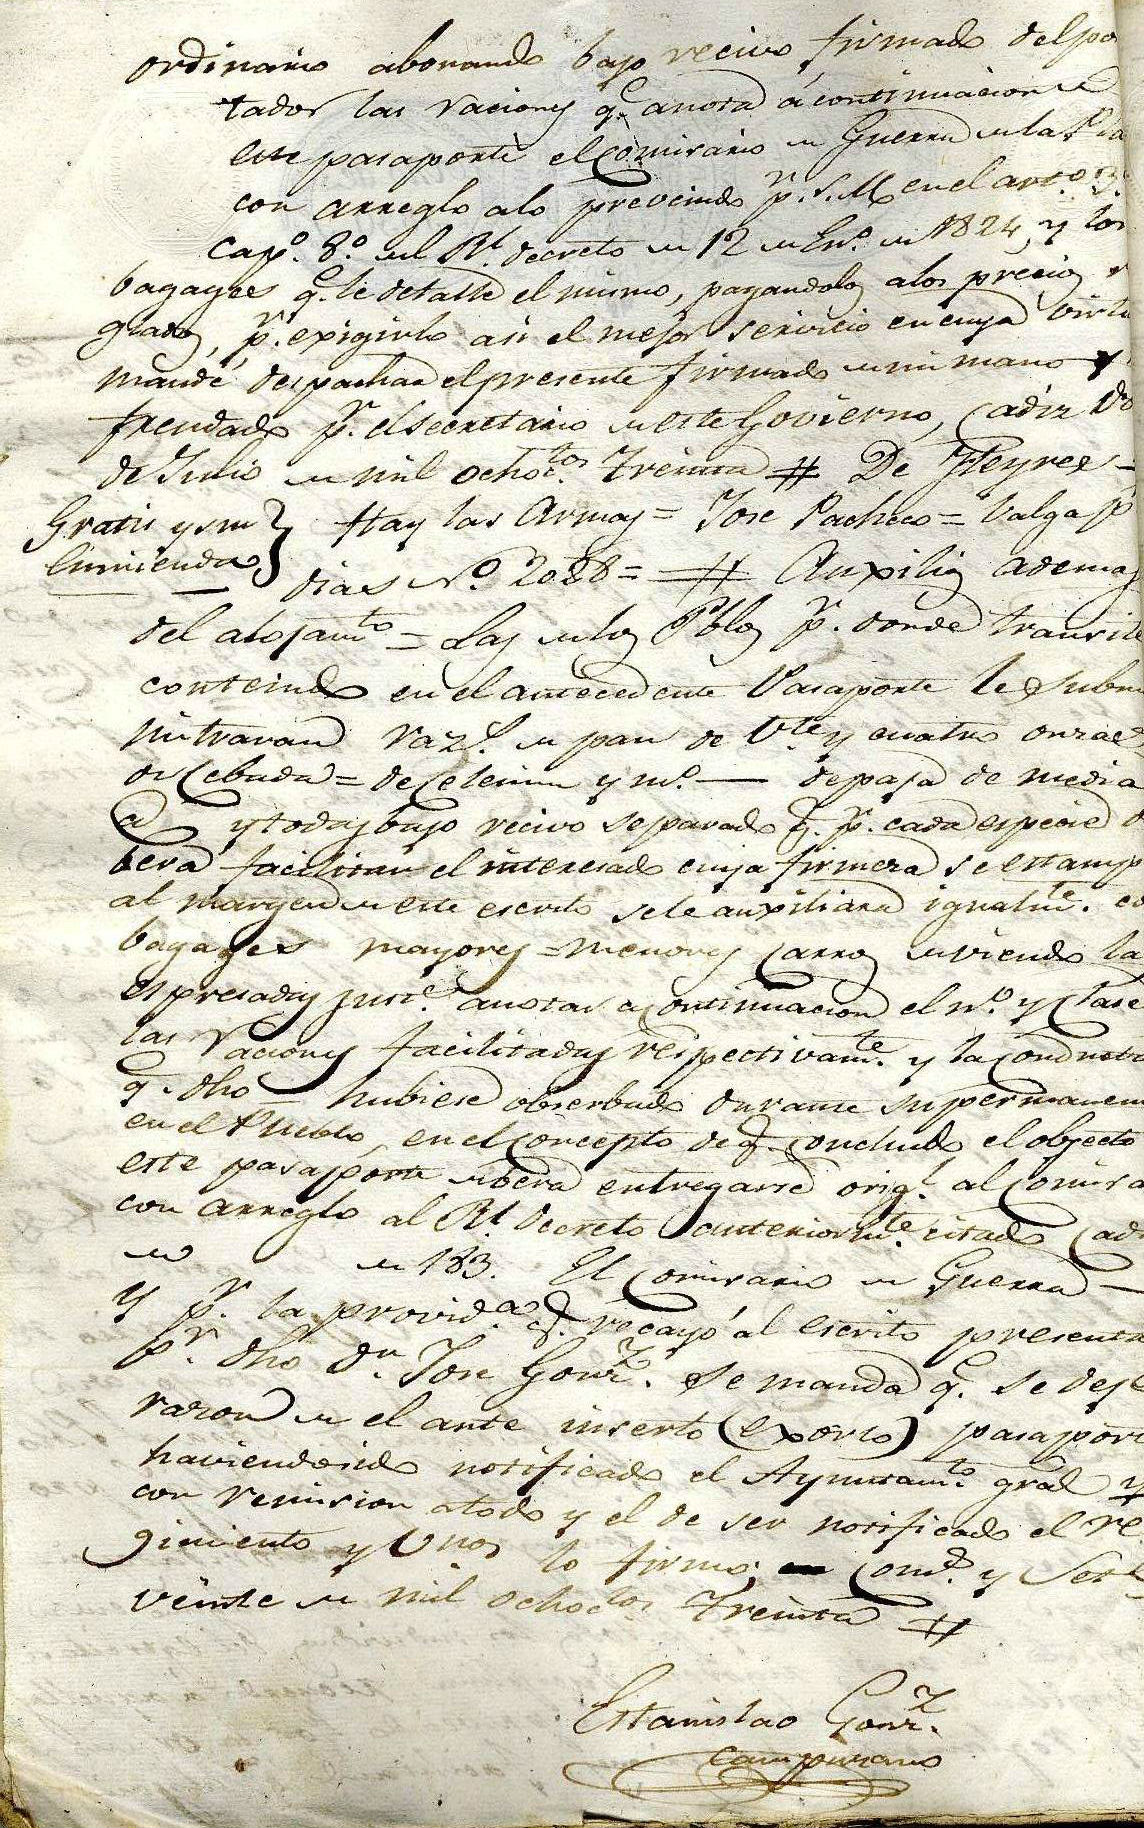 ordinario abonando bajo recivo firmado del por
tador las raciones q.e anota á continuacion de
este pasaporte el Comisario de Guerra de la Pla
con arreglo alo prevenido p.r S. M. en el art.o 3.
Cap.o 8.o del R.l decreto de 12 de En.o de 1824, y los
bagages q.e le detalle el mismo, pagandolos alos precios
glados, p.r exigirlo asi el mejor servicio en cuya virtu
mandé despachar el presente firmado de mi mano y
frendado p.r el secretario de este Govierno, Cadiz
de Julio de mil ochoc.tos Treinta # De Heyres
Gratis y sin } Hay las Armas = Jose Pacheco = Valga p
Enmienda
dias N.o 2028 = # Auxilios ademas
del alojam.to = Las de los Pblos p.r donde transite
contenido en el antecedente Pasaporte le subm
nistraran raz.s de pan de Vte y cuatro onzas
de Cebada = de Celemin y m.o — de paja de media
@ y todas bajo recivo separado q.e p.r cada especie d
berá facilitar el interesado cuya firma se estamp
al margen de este escrito se le auxiliara igualm.te co
bagages mayores = menores Carros deviendo las
espresadas just.s anotar a continuacion el n.o y clase
las raciones facilitadas respectivam.te y la conducta
q.e dho hubiese obserbado durante su permanen
en el Pueblo, en el concepto de q.e concluido el objecto
este pasaporte debera entregarse orig.l al Comisa
con arreglo al R.l decreto anteriorm.te citado Cadi
de de 183. El Comisario de Guerra —
Y p.r la provid.a q.e recayó al escrito presenta
p.r dho D.n Jose Gonz. se manda q.e se deje
razon de el ante inserto (exorto) pasaport
haviendo sido notificado el Ayuntam.to gral y
con remision a todo y el de ser notificado el re
gimiento y Unos lo firmo; Com.l y Set.e
veinte de mil ochoc.tos Treinta #
Estanislao Gonz.
Campuzano